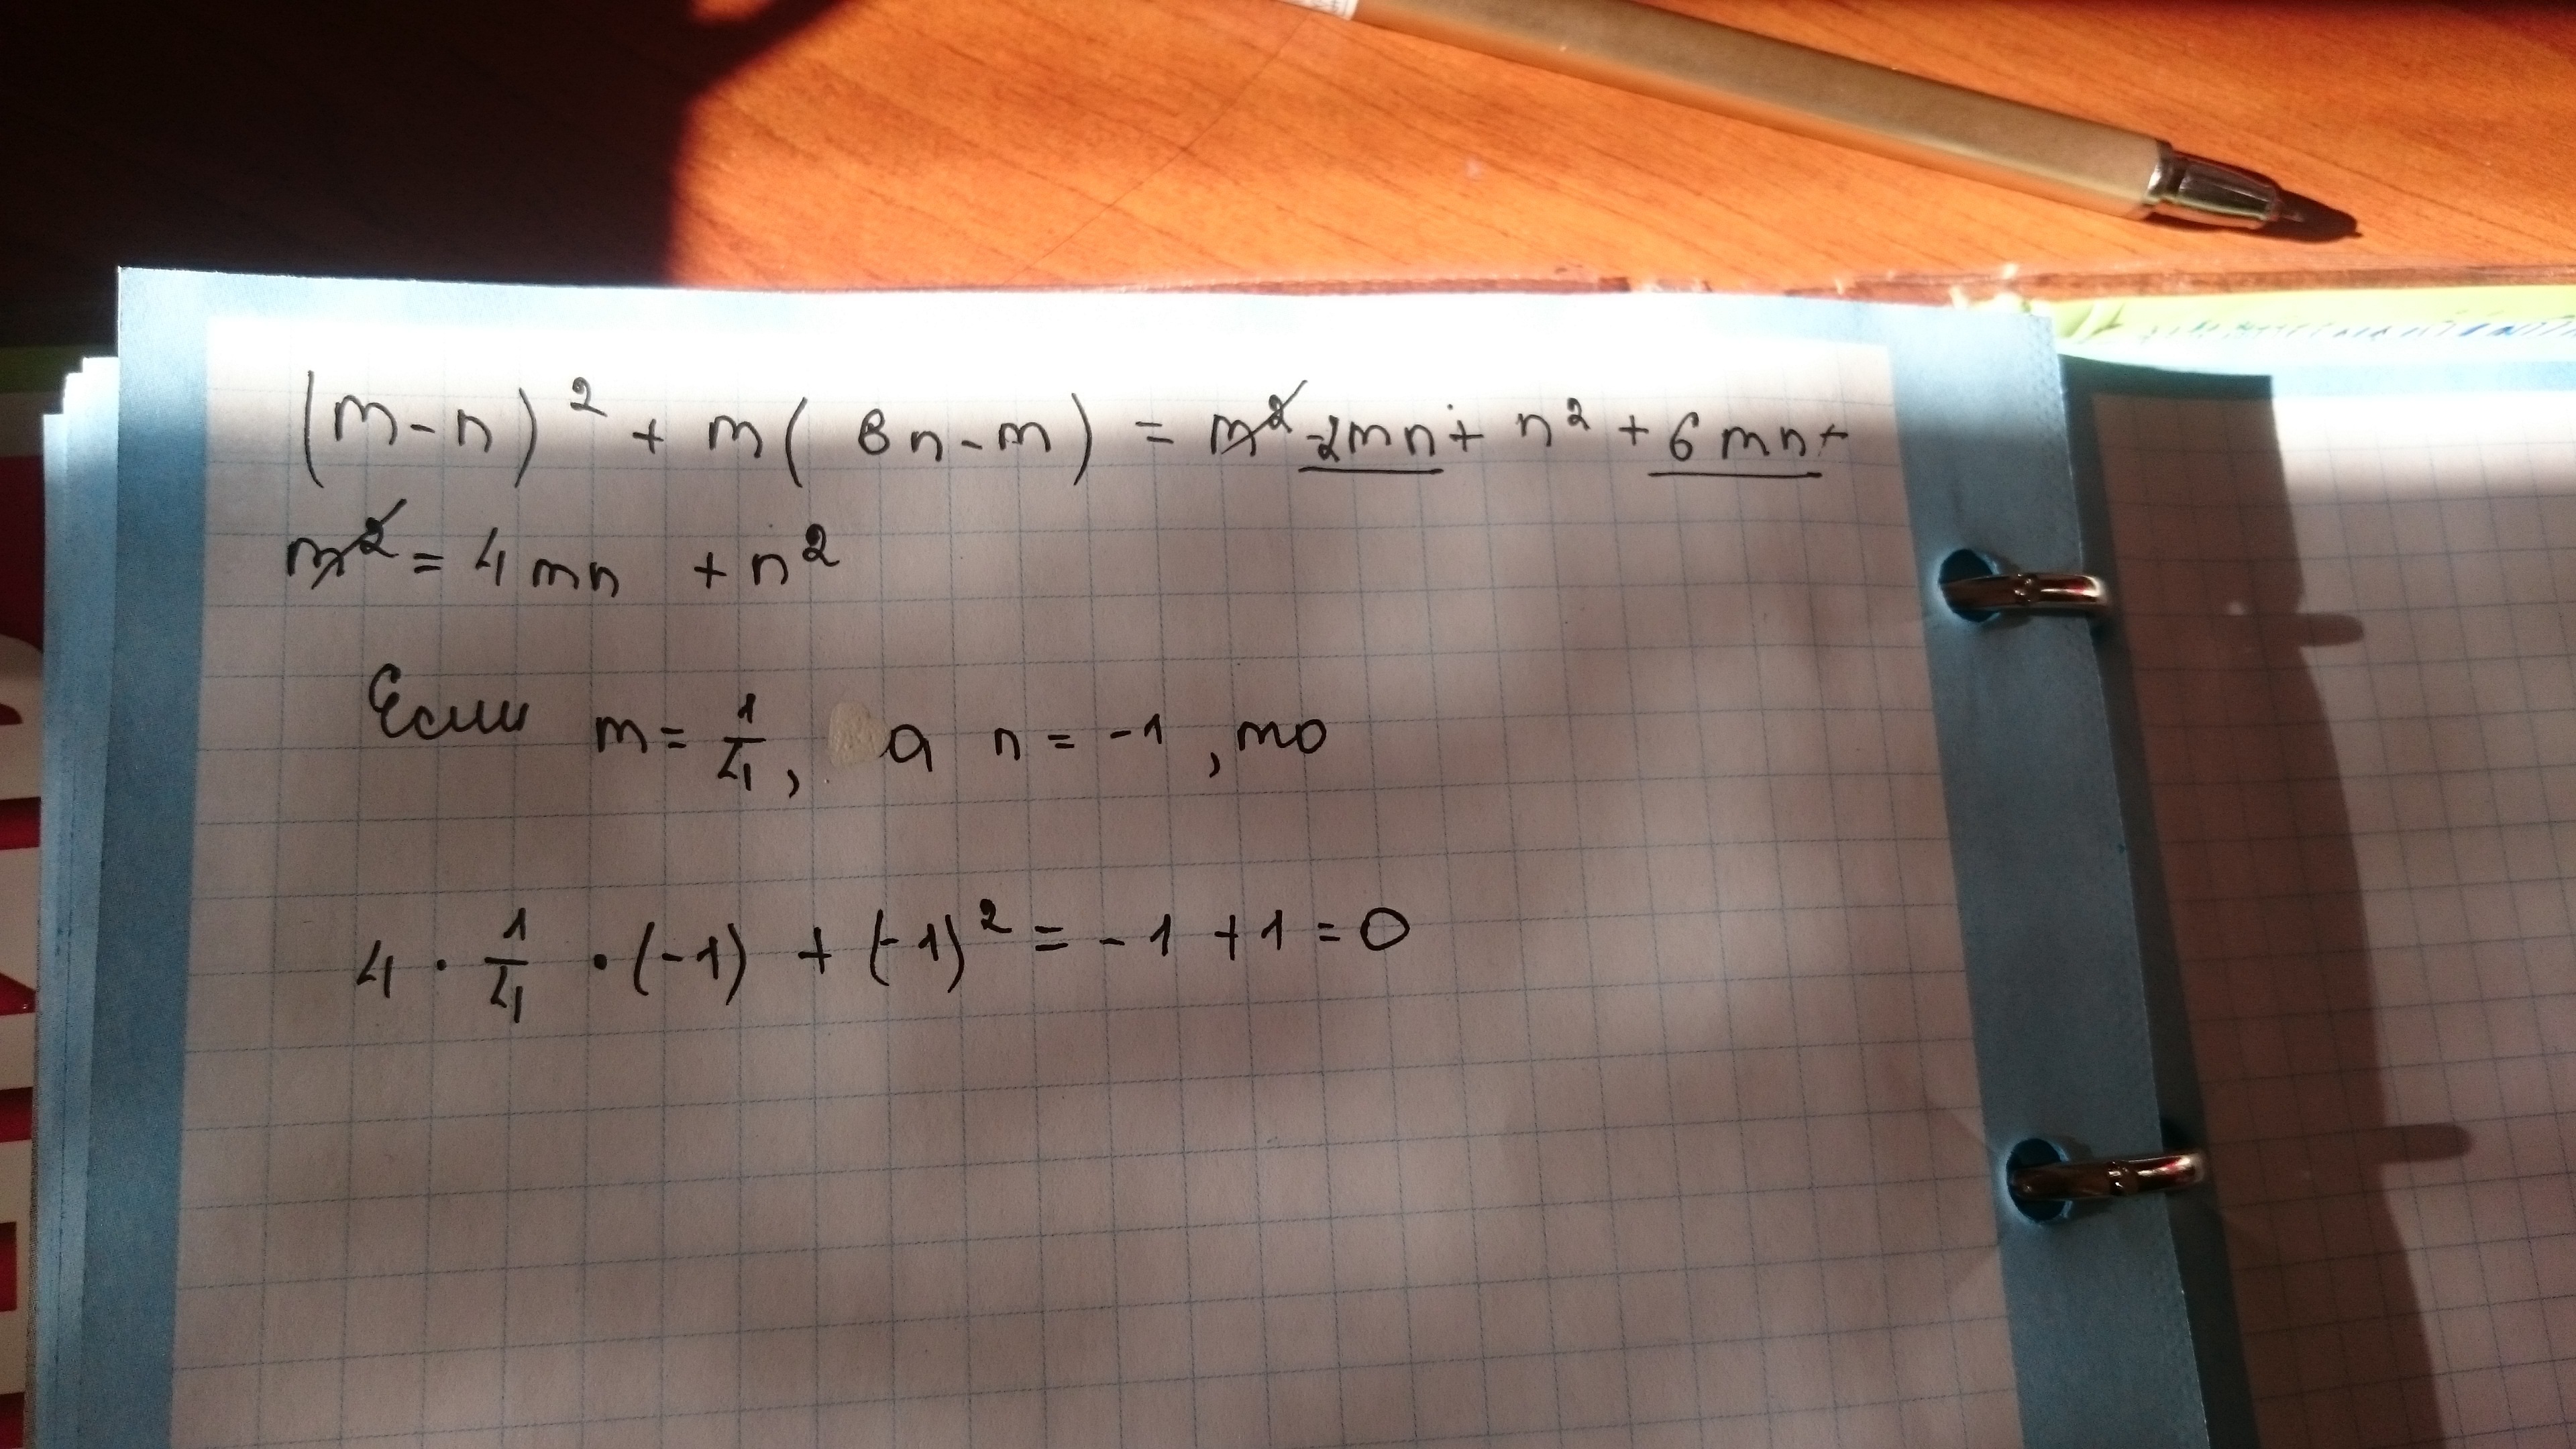 (m-n)² + m(6n-m) = m² -2mn + n² + 6mn +
m² = 4mn + n²
Если m = 1/4, а n = -1, то
4 · 1/4 · (-1) + (-1)² = -1 +1 = 0